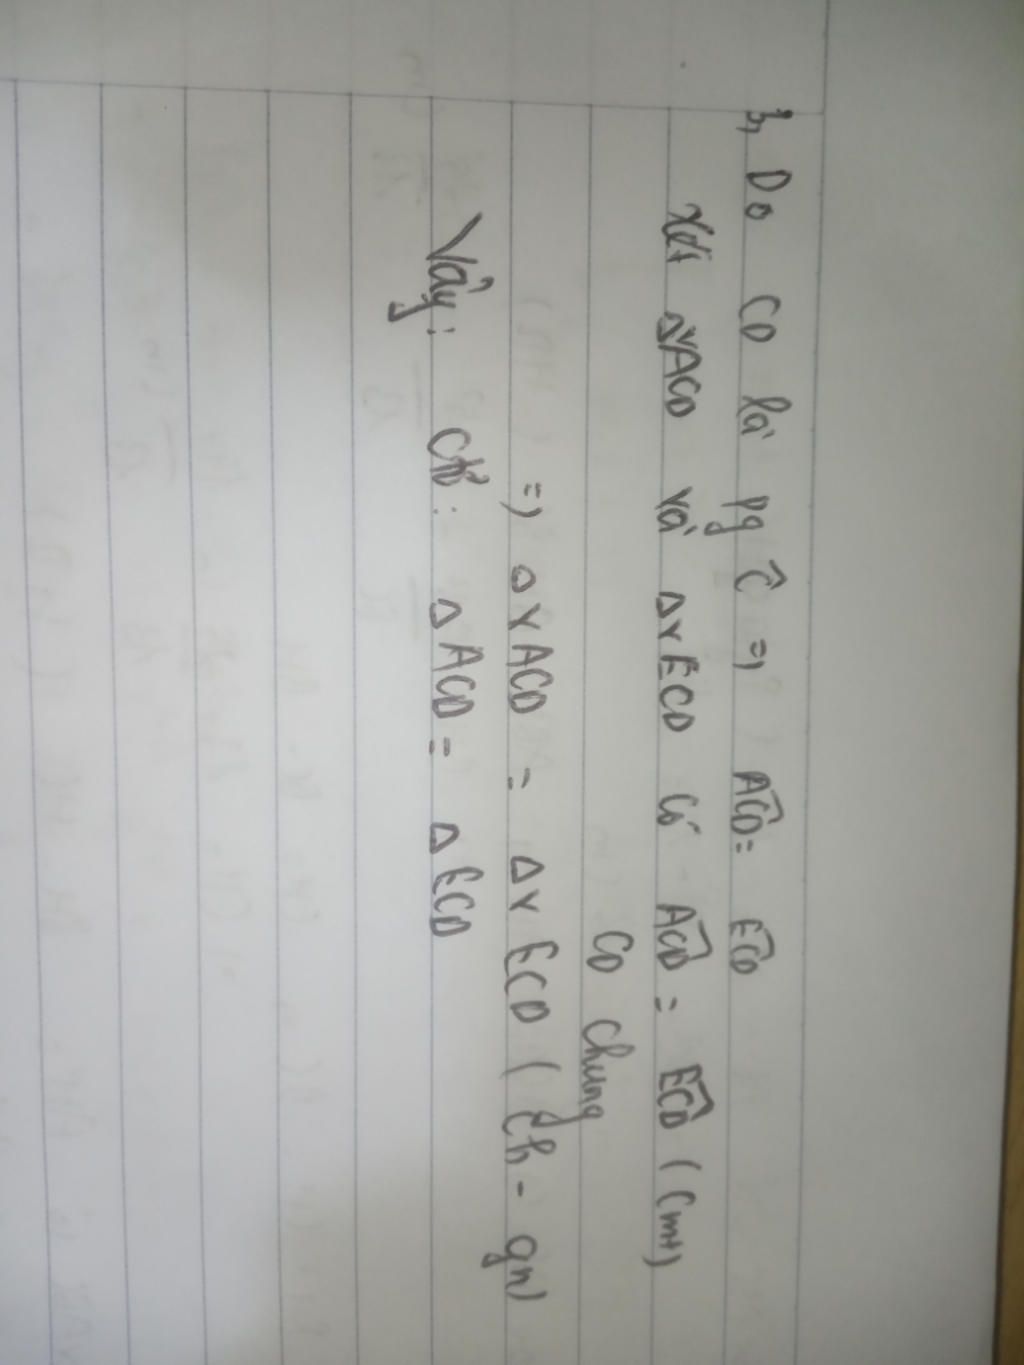 b, Do CD là pg Ĉ => ACD̂ = ECD̂
Xét ΔvACD và ΔvECD có ACD̂ = ECD̂ (cmt)
CD chung
=> ΔvACD = ΔvECD (ch - gn)
Vậy: ΔACD = ΔECD